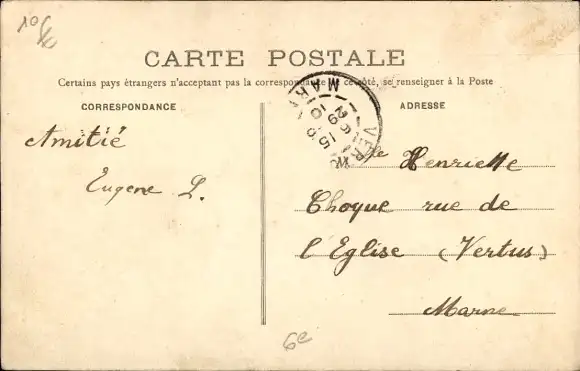 CARTE POSTALE
Certains pays étrangers n'acceptant pas la correspondance de ce côté, se renseigner à la Poste
CORRESPONDANCE
ADRESSE
Amitié
Eugene L.
Mlle Henriette
Choque rue de
l'Eglise (Vertus)
Marne
6e